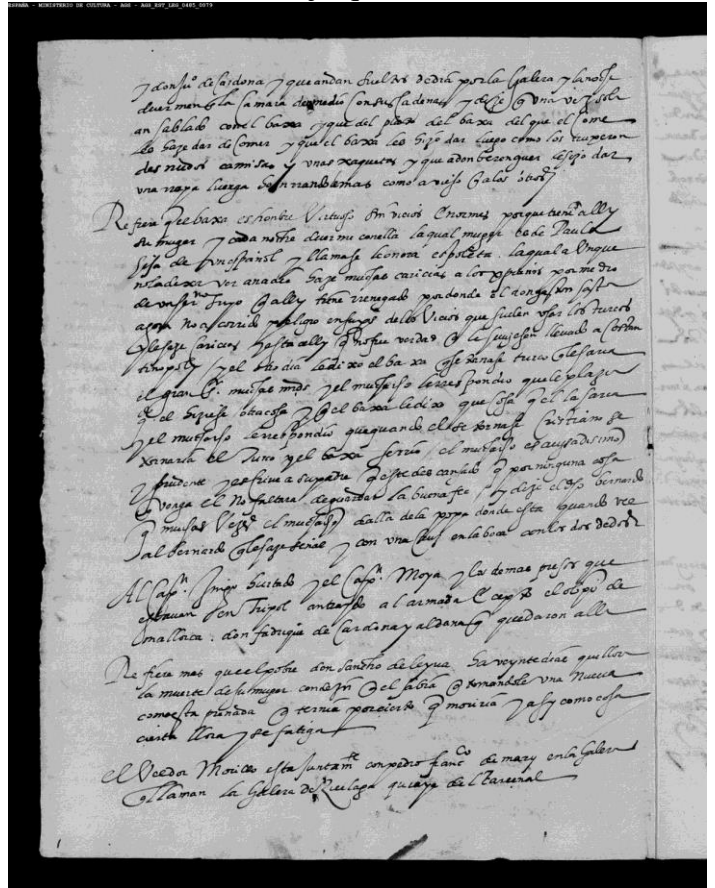 ESPAÑA - MINISTERIO DE CULTURA - AGS - AGS_EST_LEG_0485_0079
y don Ju° de Cardona y que andan sueltos dedia por la galera y la noche
duermen en la camara de medio con sus cadenas y dize q una vez sola
an hablado con el baxa y que del plato del baxa del que el come
les haze dar de comer y que el baxa les hizo dar luego como los truxeron
desnudos camisas y unas xaquetas y que a don berenguer le hizo dar
una ropa luenga honrrandole mas como a viejo q a los otros
Refiere q el baxa es hombre virtuoso sin vicios enormes porque tiene ally
su muger y cada noche duerme con ella la qual muger es de Paulo
hija de un español y llamase leonora espoleta la qual aunque
no la dexa ver a nadie haze muchas caricias a los xpianos por medio
de un suyo q ally tiene renegado por donde el don gaston hasta
agora no a corrido peligro en su de los vicios que suelen usar los turcos
y le haze caricias hasta ally q no fue verdad q le huviesen llevado a Costan
tinopoly y el otro dia le dixo el baxa q se tornase turco q le haria
el gran s.r muchas mds y el muchacho le respondio que le plazia
q el hiziese otra cosa y q el baxa le dixo que cosa q el la haria
y el muchacho le respondio que quando el se tornase Cristiano se
tornaria el turco y el baxa se rio / el muchacho es avisadisimo
y prudente y escrive a su padre q este descansado q por ninguna cosa
q venga el no faltara de guardar la buena fee / y dize el bernardo
q muchas vezes el muchacho de alla de la popa donde esta quando vee
al bernardo q le haze señas y con una cruz en la boca con los dos dedos
Al Cap.n Inigo hurtado y el Cap.n Moya y los demas presos que
estavan en Tripol an traydo al armada Excepto el obpo de
mallorca, don fadrique de Cardona y aldana q quedaron alli
Refiere mas que el pobre don sancho de leyva ha veynte dias que llora
la muerte de su muger con dezir q el sabia q tomandole una nueva
como esta preñada q ternia por cierto q moriria y asy como cosa
cierta llora y se fatiga
El Veedor Morillo esta juntam.te con pedro fran.co de mary en la galera
q llaman la galera de que aya del tarsenal